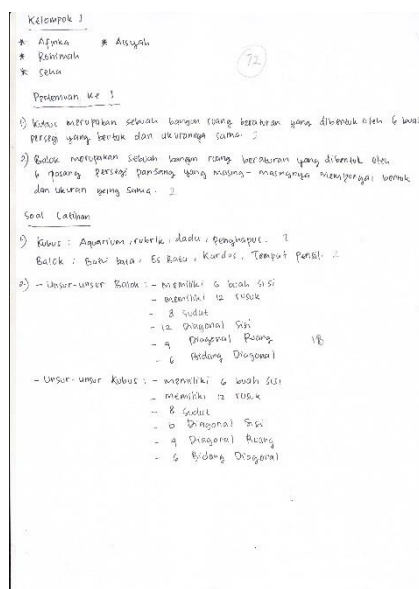 Kelompok 1
* Afinka * Aisyah
* Rohimah
* Selia
72
Pertemuan ke 1
1) Kubus merupakan sebuah bangun ruang beraturan yang dibentuk oleh 6 buah
persegi yang bentuk dan ukurannya sama. 2
2) Balok merupakan sebuah bangun ruang beraturan yang dibentuk oleh
6 pasang persegi panjang yang masing-masingnya mempunyai bentuk
dan ukuran yang sama. 2
Soal Latihan
1) Kubus : Aquarium, rubrik, dadu, Penghapus. 2
Balok : Batu bata, Es Batu, Kardus, Tempat Pensil. 2
2) - Unsur-unsur Balok : - memiliki 6 buah sisi
- memiliki 12 rusuk
- 8 sudut
- 12 Diagonal sisi
- 4 Diagonal Ruang 18
- 6 Bidang Diagonal
- Unsur-unsur Kubus : - memiliki 6 buah sisi
- memiliki 12 rusuk
- 8 sudut
- 6 Diagonal sisi
- 4 Diagonal Ruang
- 6 Bidang Diagonal